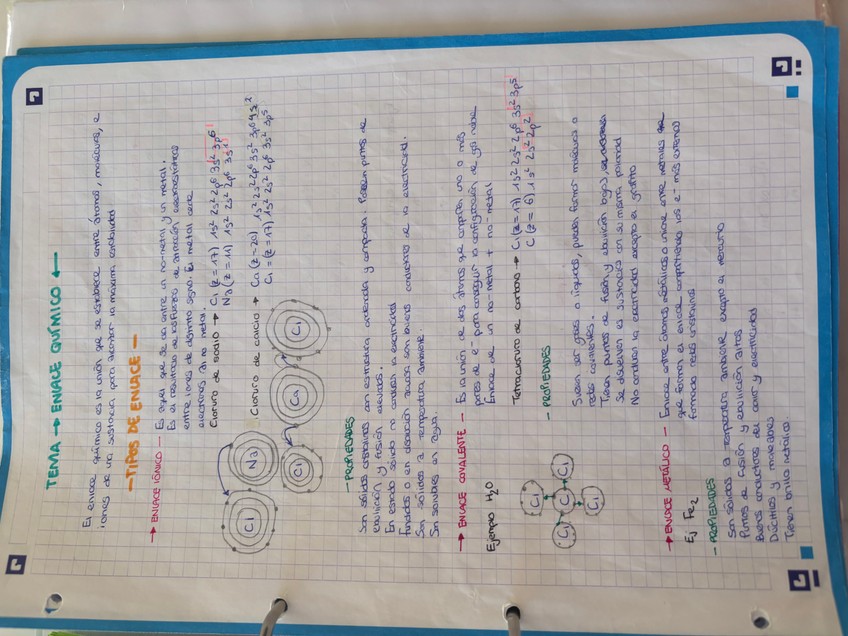 TEMA → ENLACE QUÍMICO ←
El enlace químico es la unión que se establece entre átomos, moléculas, e
iones de una sustancia para alcanzar la máxima estabilidad
- TIPOS DE ENLACE -
→ ENLACE IÓNICO - Es aquel que se da entre un no-metal y un metal.
Es el resultado de las fuerzas de atracción electrostáticas
entre iones de distinto signo. El metal cede
electrones al no metal.
Cloruro de sodio → Cl (z=17) 1s² 2s² 2p⁶ 3s² 3p⁶
Na (z=11) 1s² 2s² 2p⁶ 3s¹
Cloruro de calcio → Ca (z=20) 1s² 2s² 2p⁶ 3s² 3p⁶ 4s²
Cl = (z=17) 1s² 2s² 2p⁶ 3s² 3p⁵
Cl Na
Cl Ca Cl
- PROPIEDADES
Son sólidos cristalinos con estructura ordenada y compacta. Poseen puntos de
ebullición y fusión elevados.
En estado sólido no conducen la electricidad
fundidos o en disolución acuosa son buenos conductores de la electricidad.
Son sólidos a temperatura ambiente.
Son solubles en agua.
→ ENLACE COVALENTE - Es la unión de dos átomos que comparten uno o más
pares de e⁻ para conseguir la configuración de gas noble
Enlace de un no-metal + no-metal
Ejemplo H₂O
Tetracloruro de carbono → Cl (z=17) 1s² 2s² 2p⁶ 3s² 3p⁵
C (z=6) 1s² 2s² 2p²
Cl
Cl C Cl
Cl
- PROPIEDADES
Suelen ser gases o líquidos, pueden formar moléculas o
redes covalentes.
Tienen puntos de fusión y ebullición bajos,
Se disuelven en sustancias con su misma polaridad
No conducen la electricidad excepto el grafito
→ ENLACE METÁLICO - Enlace entre átomos metálicos o iones entre metales
que forman el enlace compartiendo los e⁻ más externos
formando redes cristalinas
Ej Fe₂
- PROPIEDADES
Son sólidos a temperatura ambiente excepto el mercurio
Puntos de fusión y ebullición altos
Buenos conductores del calor y electricidad
Dúctiles y maleables
Tienen brillo metálico.